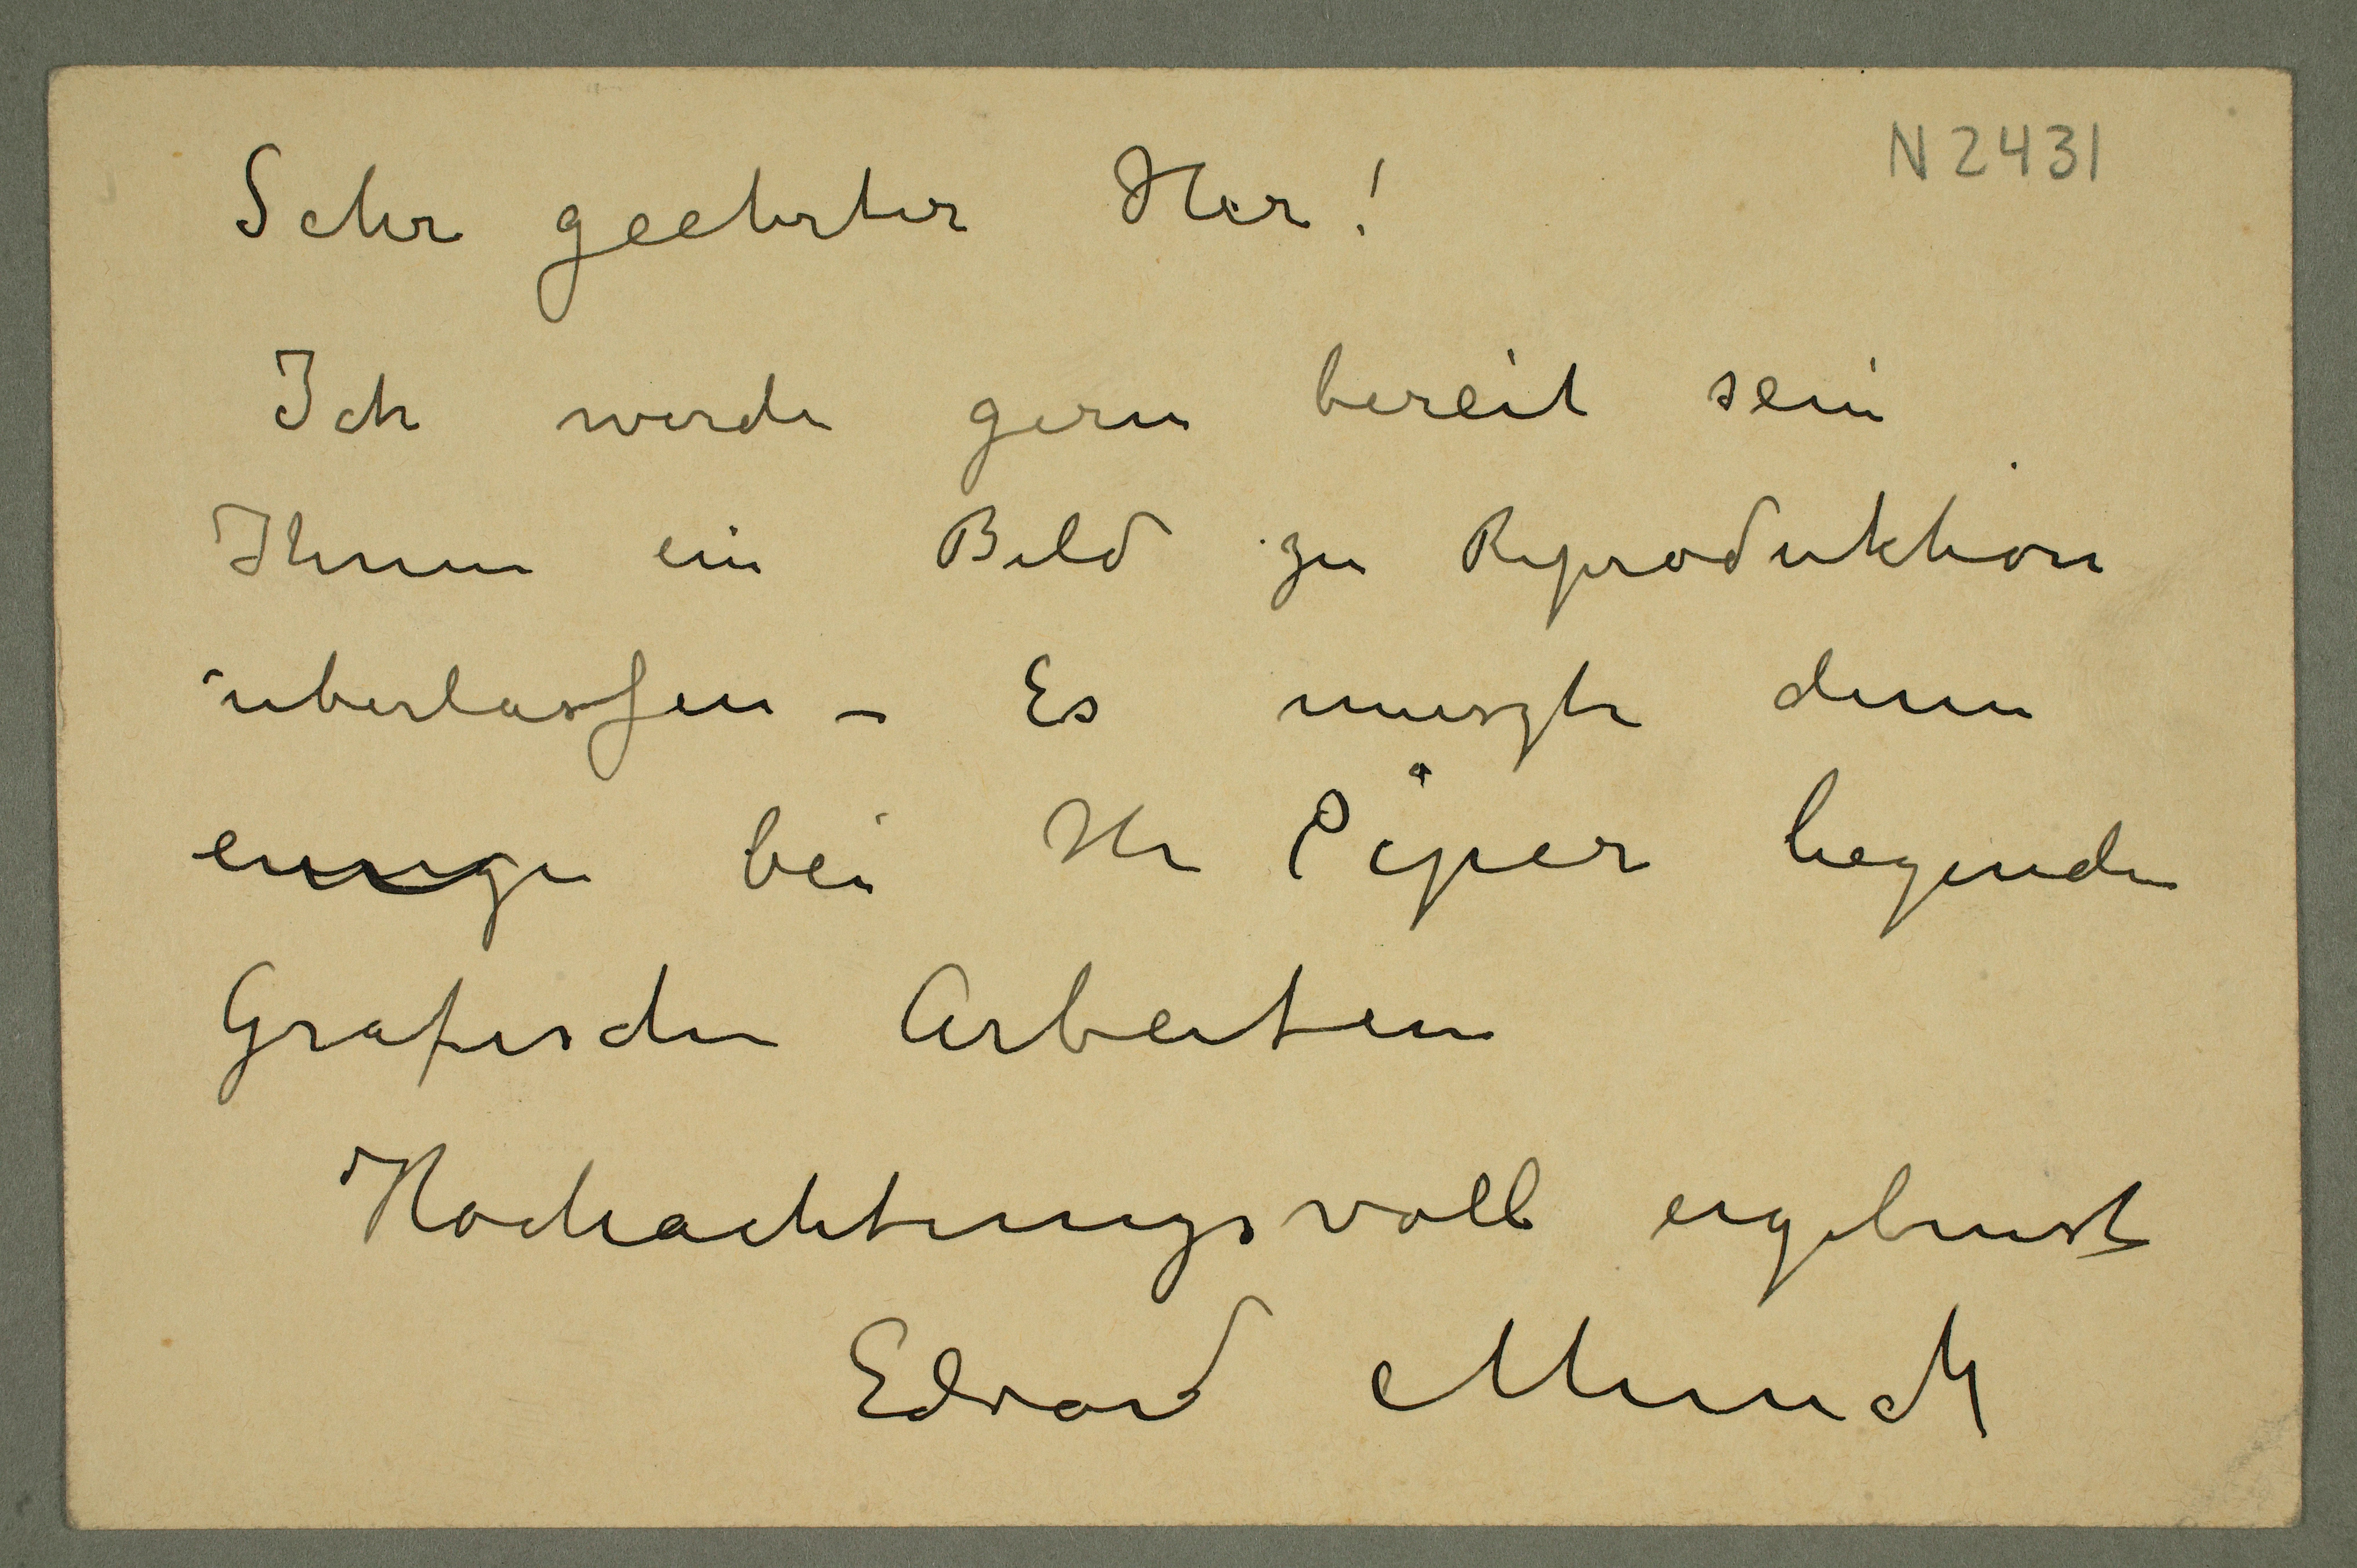 N 2431
Sehr geehrter Her!
Ich werde gern bereit sein
Ihnen ein Bild zu Reproduktion
überlassen – Es muszte denn
einige bei Hr Piper liegende
Grafische Arbeiten
Hochachtungsvoll ergebenst
Edvard Munch